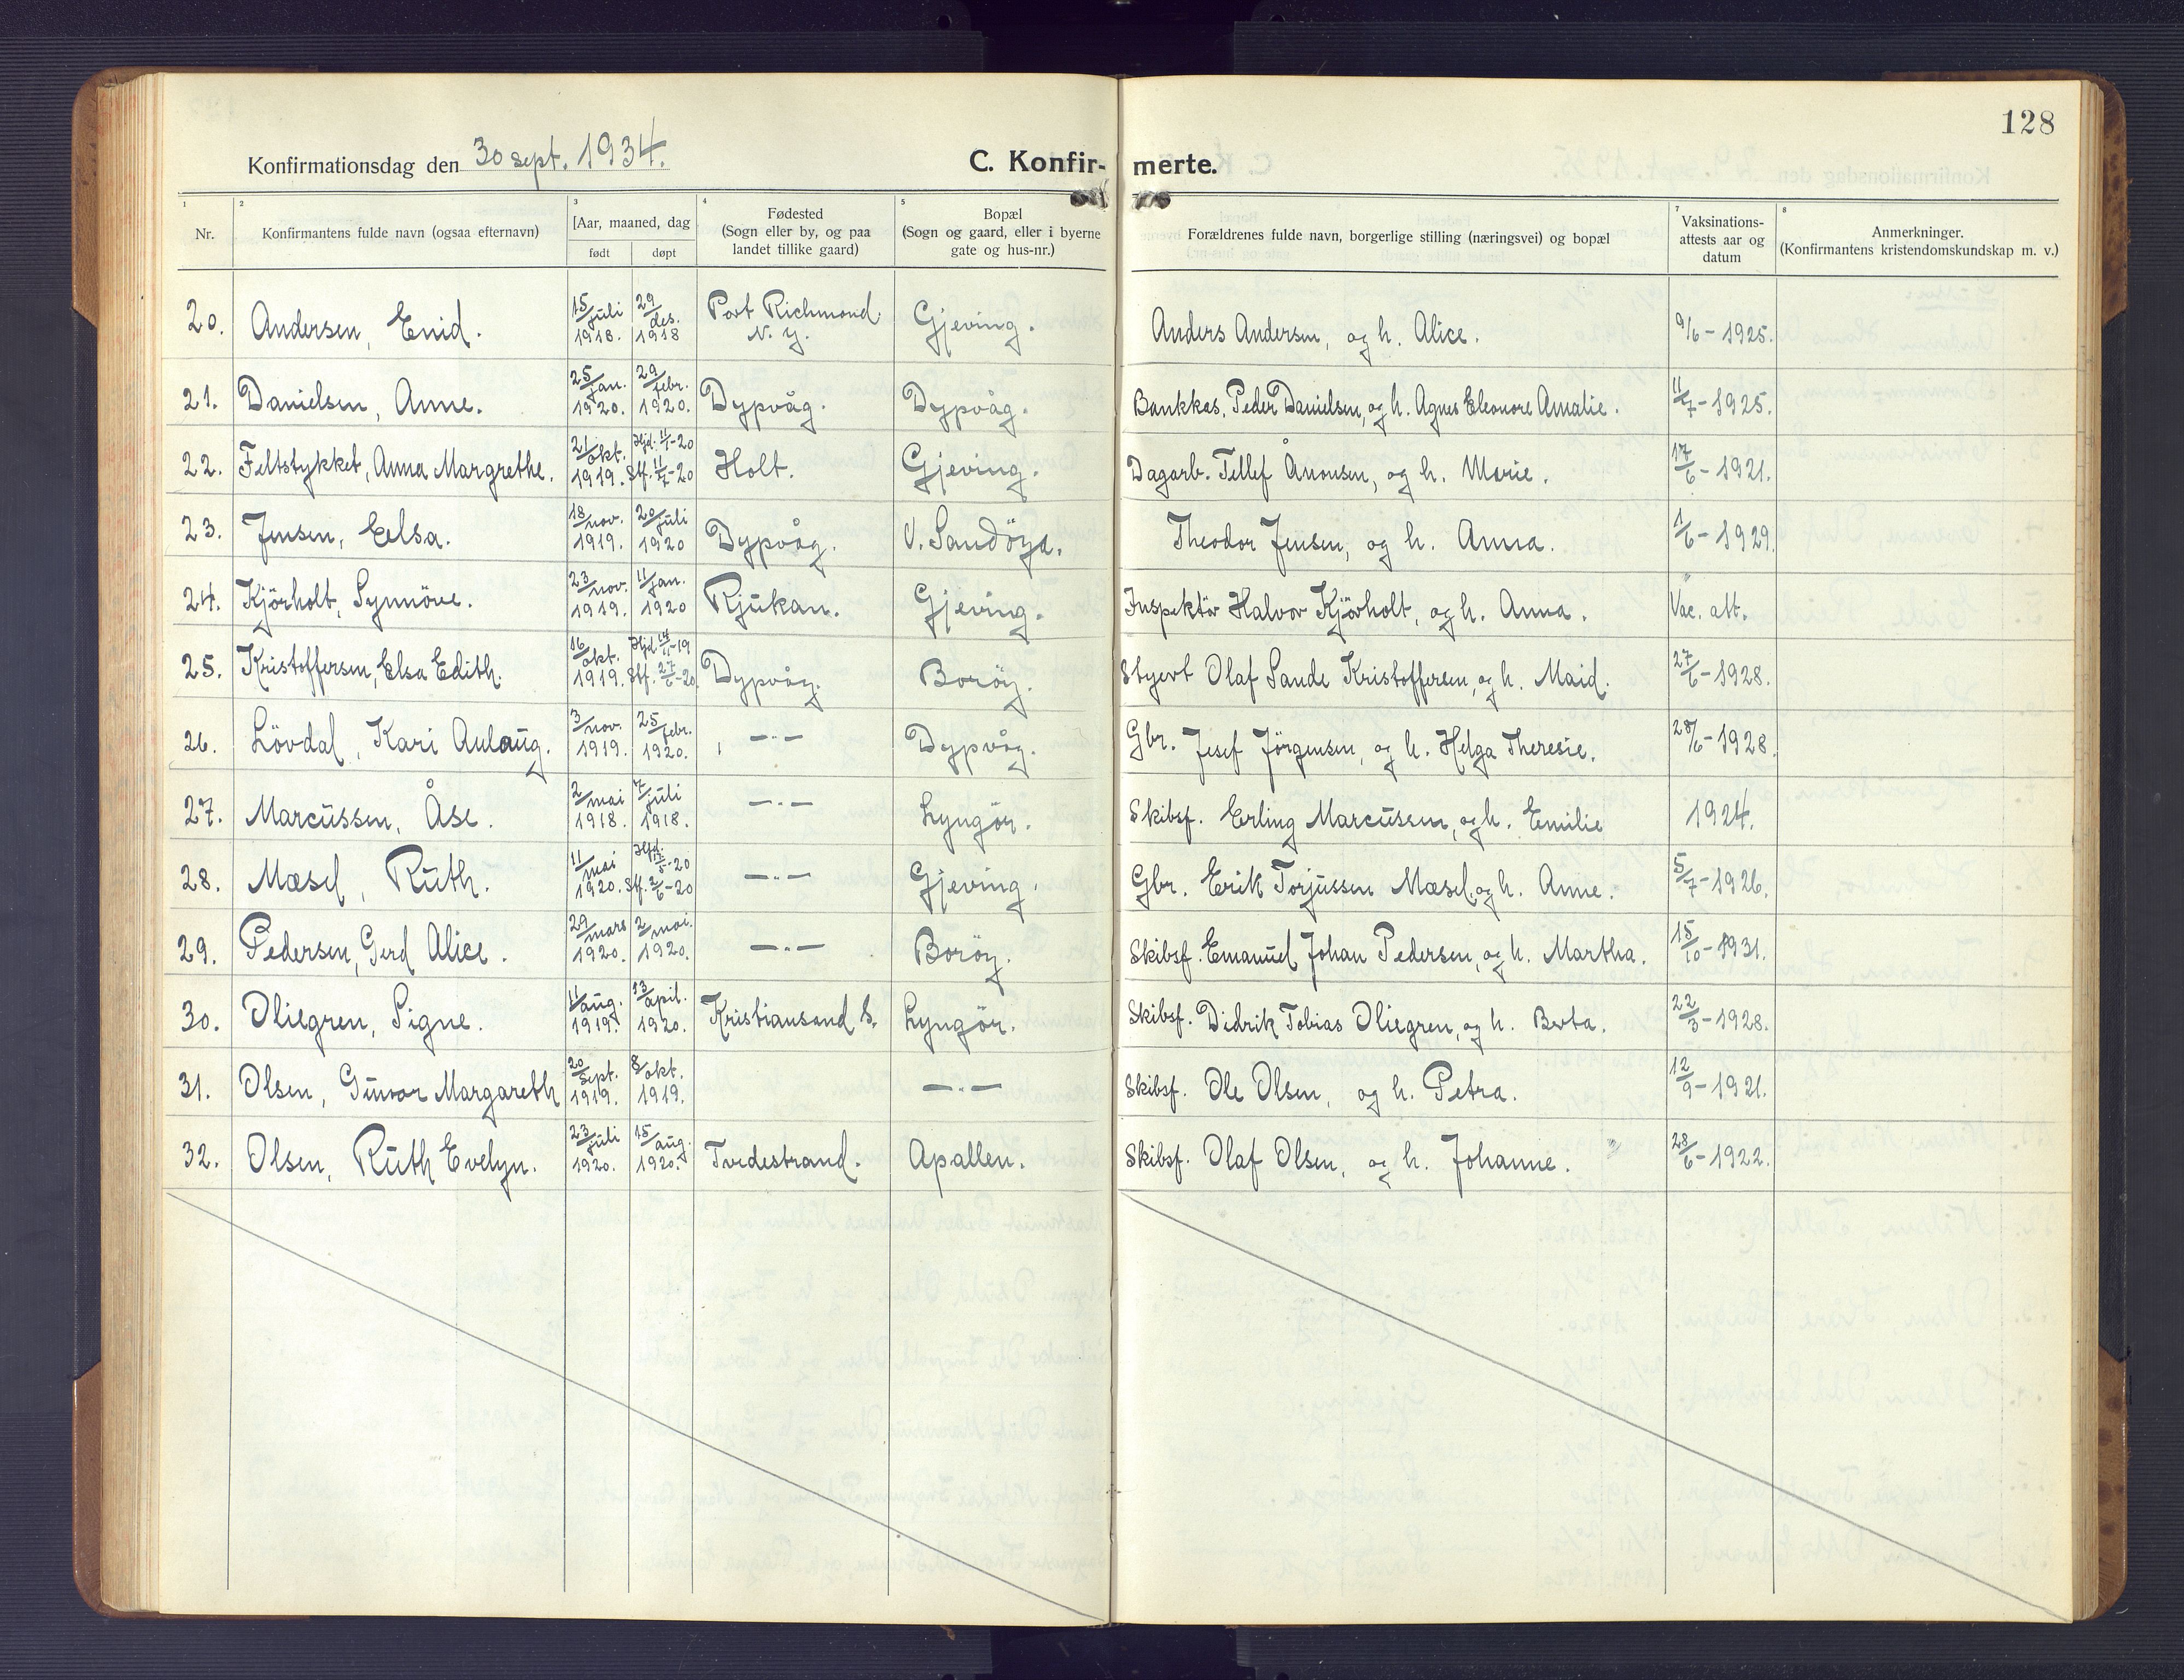 128
Konfirmationsdag den 30 sept. 1934.
C. Konfirmerte.
1 2 3 4 5 7 8
Nr.
Konfirmantens fulde navn (ogsaa efternavn)
[Aar, maaned, dag
født døpt
Fødested
(Sogn eller by, og paa
landet tillike gaard)
Bopæl
(Sogn og gaard, eller i byerne
gate og hus-nr.)
Forældrenes fulde navn, borgerlige stilling (næringsvei) og bopæl
Vaksinations-
attests aar og
datum
Anmerkninger.
(Konfirmantens kristendomskundskap m. v.)
20. Andersen, Enid. 15/juli 1918. 29/des. 1918 Port Richmond N. Y. Gjeving. Anders Andersen, og h. Alice. 9/6 - 1925.
21. Danielsen, Anne. 25/jan. 1920. 29/febr. 1920. Dypvåg. Dypvåg. Bankkas. Peder Danielsen, og h. Agnes Eleonore Amalie. 11/7 - 1925.
22. Feltstykket, Anna Margrethe. 21/okt. 1919. Hjd. 11/1-20 Stf. 11/7-20 Holt. Gjeving. Dagarb. Tellef Ånonsen, og h. Marie. 17/6 - 1921.
23. Jensen, Eelsa. 18/nov. 1919. 20/juli 1920 Dypvåg. V. Sandöya. Theodor Jensen, og h. Anna. 1/6 - 1929.
24. Kjörholt, Synnöve. 23/nov. 1919. 11/jan. 1920 Rjukan. Gjeving. Inspektör Halvor Kjörholt, og h. Anna. Vac. att.
25. Kristoffersen, Elsa Edith. 16/okt. 1919. Hjd. 14/11-19 Stf. 27/6-20 Dypvåg. Boröy. Styert Olaf Sande Kristoffersen, og h. Maid. 27/6 - 1928.
26. Lövdal, Kari Aulaug. 3/nov. 1919. 25/febr. 1920. —"— Dypvåg. Gbr. Josef Jörgensen, og h. Helga Theresie. 28/6 - 1928.
27. Marcussen, Åse. 2/mai 1918. 7/juli 1918. —"— Lyngör. Skibsf. Erling Marcussen, og h. Emilie 1924.
28. Mæsel, Ruth. 11/mai 1920. Hjd. 17/5-20 Stf. 2/6-20 —"— Gjeving. Gbr. Erik Torjussen Mæsel, og h. Anne. 5/7 - 1926.
29. Pedersen, Gerd Alice. 29/mars 1920. 2/mai. 1920. —"— Boröy. Skibsf. Emanuel Johan Pedersen, og h. Martha. 15/10 - 1931.
30. Oliegren, Signe. 11/aug. 1919. 13/april. 1920. Kristiansand S. Lyngör. Skibsf. Didrik Tobias Oliegren, og h. Berta. 22/3 - 1928.
31. Olsen, Gunvor Margareth 20/sept. 1919. 8/okt. 1919. —"— Skibsf. Ole Olsen, og h. Petra. 12/9 - 1921.
32. Olsen, Ruth Evelyn. 23/juli 1920. 15/aug. 1920. Tvedestrand. Apallen. Skibsf. Olaf Olsen, og h. Johanne. 28/6 - 1922.